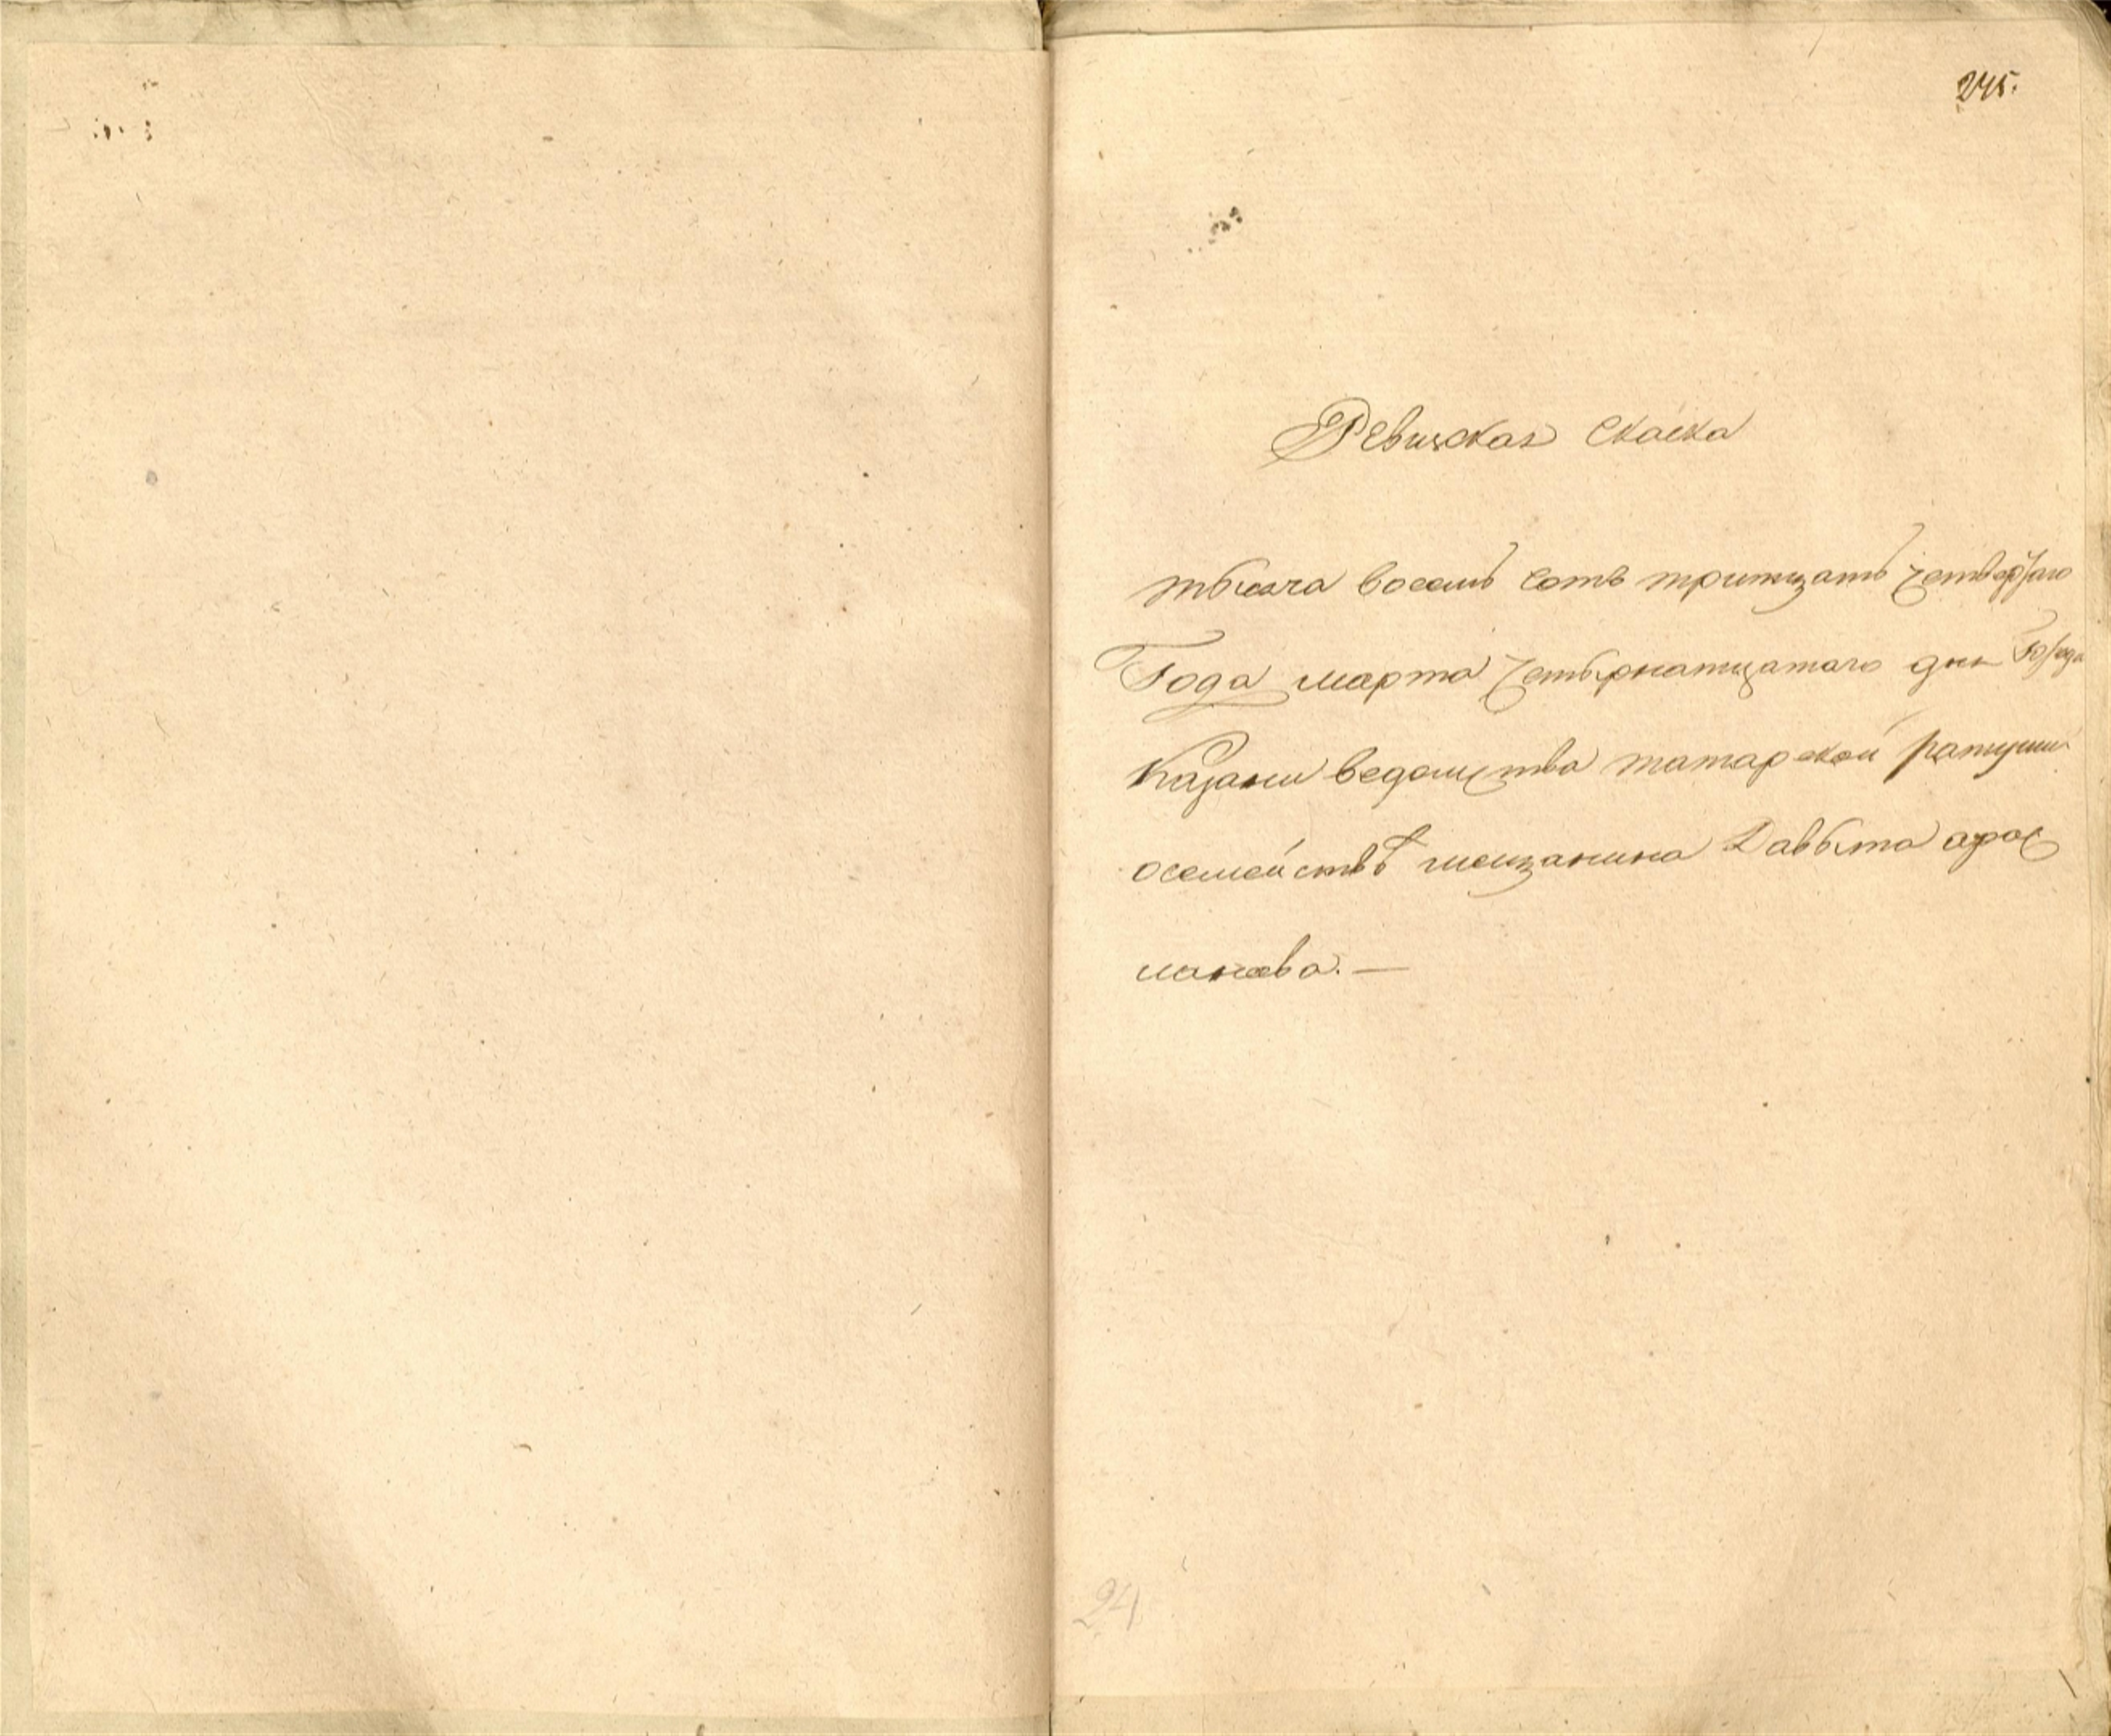 245.
Ревизская Скаска
тысяча восемь сотъ тритцать четвертаго
Года марта четырнатцатаго дня Города
Казани ведомства татарской ратуши
осемействѣ мещанина Давыта арас
ланова. —
24